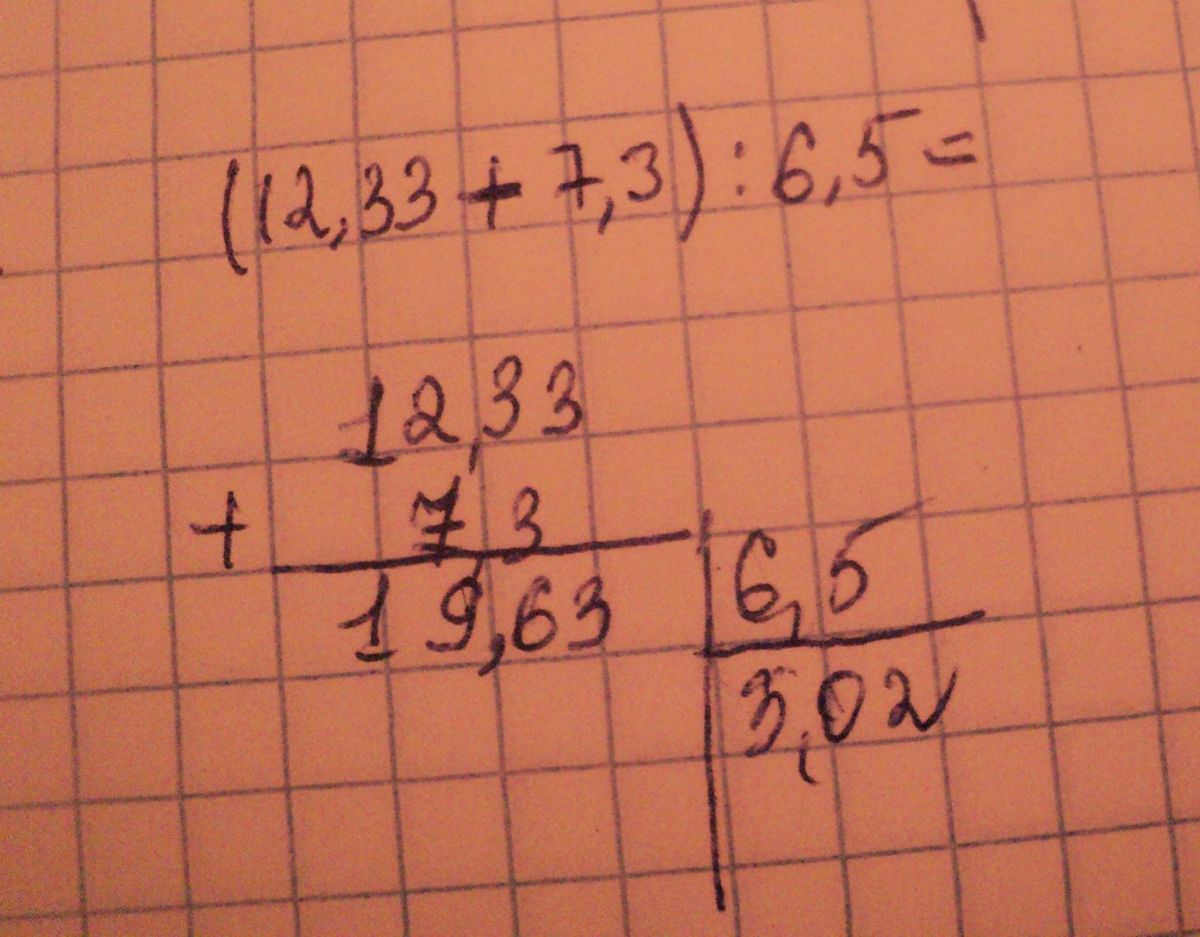 (12,33 + 7,3) : 6,5 =
12,33
+ 7,3
19,63 | 6,5
3,02